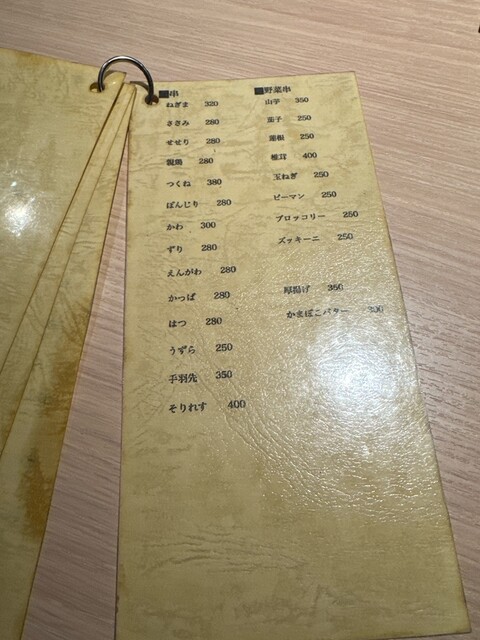 ■串
ねぎま 320
ささみ 280
せせり 280
親鶏 280
つくね 380
ぼんじり 280
かわ 300
ずり 280
えんがわ 280
かっぱ 280
はつ 280
うずら 250
手羽先 350
そりれす 400
■野菜串
山芋 350
茄子 250
蓮根 250
椎茸 400
玉ねぎ 250
ピーマン 250
ブロッコリー 250
ズッキーニ 250
厚揚げ 350
かまぼこバター 300